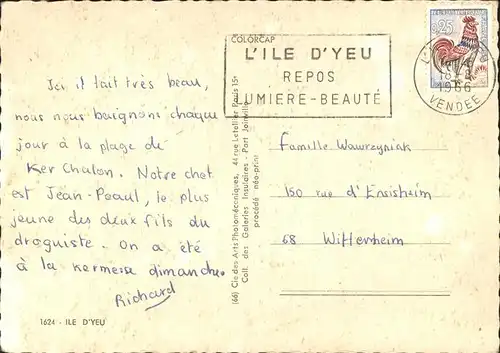 COLORCAP
L'ILE D'YEU
REPOS
UMIERE-BEAUTÉ
0,25
18
1966
VENDEE
Ici il fait très beau,
nous nous baignons chaque
jour à la plage de
Ker Chalon. Notre chet
est Jean-Peaul, le plus
jeune des deux fils du
droguiste. On a été
à la kermesse dimanche.
Richard
1624 - ILE D'YEU
(66) Cie des Arts Photomécaniques, 44 rue Letellier Paris 15e
Coll. des Galeries Insulaires - Port Joinville
procédé néo-print
Famille Wawrzyniak
150 rue d'Ensisheim
68 Wittenheim